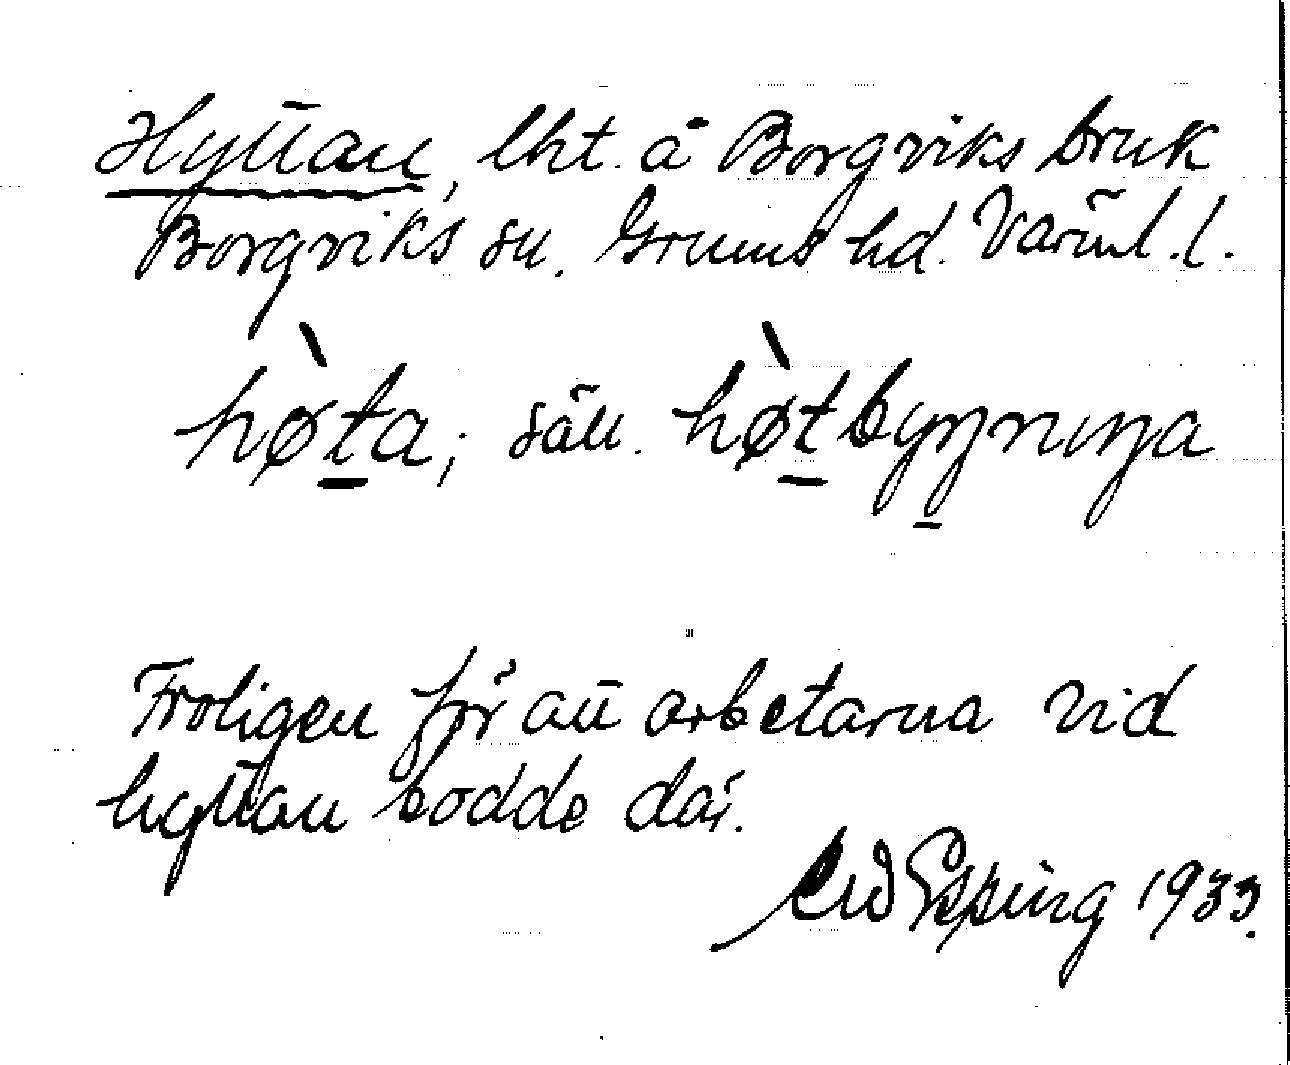 Hyttan, lht. å Borgviks bruk
Borgviks sn. Grums hd. Värml. l.
hø̀ta; säll. hø̀tbyŋniŋa
Troligen för att arbetarna vid
hyttan bodde där.
Epping 1933.